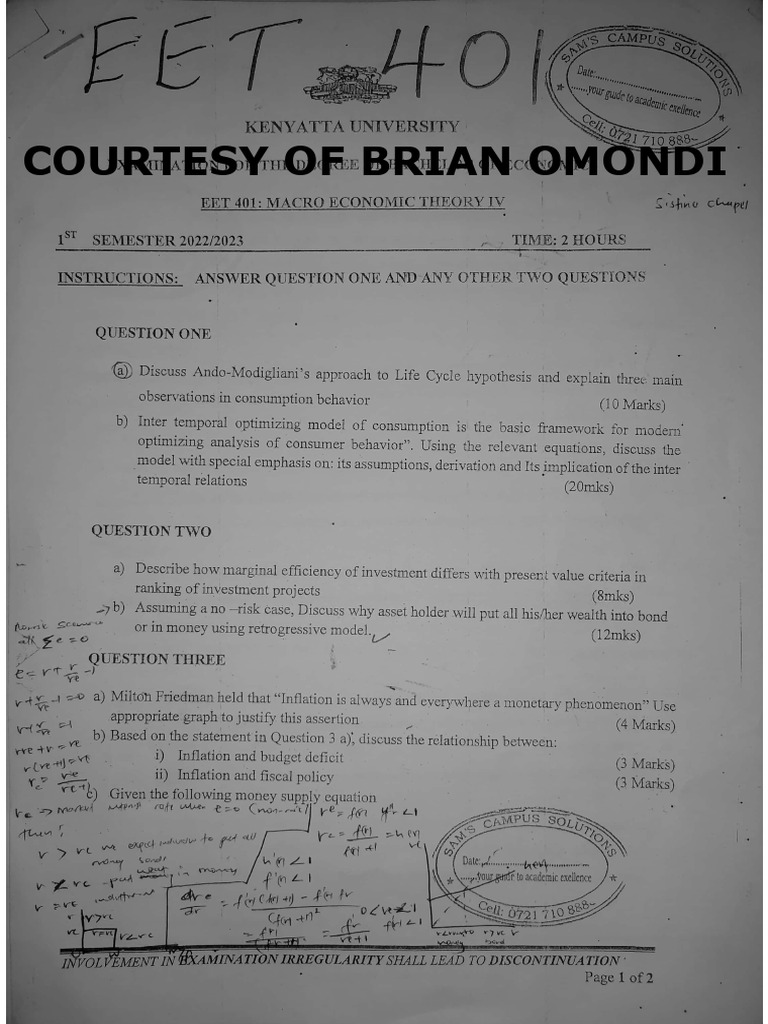 EET 401
SAM'S CAMPUS SOLUTIONS
Date:
your guide to academic exellence
Cell: 0721 710 888
KENYATTA UNIVERSITY
COURTESY OF BRIAN OMONDI
EET 401: MACRO ECONOMIC THEORY IV
Sistine chapel
1ST SEMESTER 2022/2023 TIME: 2 HOURS
INSTRUCTIONS: ANSWER QUESTION ONE AND ANY OTHER TWO QUESTIONS
QUESTION ONE
a) Discuss Ando-Modigliani's approach to Life Cycle hypothesis and explain three main
observations in consumption behavior (10 Marks)
b) Inter temporal optimizing model of consumption is the basic framework for modern
optimizing analysis of consumer behavior". Using the relevant equations, discuss the
model with special emphasis on: its assumptions, derivation and Its implication of the inter
temporal relations (20mks)
QUESTION TWO
a) Describe how marginal efficiency of investment differs with present value criteria in
ranking of investment projects (8mks)
b) Assuming a no –risk case, Discuss why asset holder will put all his/her wealth into bond
or in money using retrogressive model. (12mks)
QUESTION THREE
a) Milton Friedman held that "Inflation is always and everywhere a monetary phenomenon" Use
appropriate graph to justify this assertion (4 Marks)
b) Based on the statement in Question 3 a), discuss the relationship between:
i) Inflation and budget deficit (3 Marks)
ii) Inflation and fiscal policy (3 Marks)
c) Given the following money supply equation
e = r + r/re - 1
r + r/re - 1 = 0
r + r/re = 1
rre + r = re
r(re+1) = re
rc = re/re+1
then
SAM'S CAMPUS SOLUTIONS
Date:
your guide to academic exellence
Cell: 0721 710 888
INVOLVEMENT IN EXAMINATION IRREGULARITY SHALL LEAD TO DISCONTINUATION
Page 1 of 2